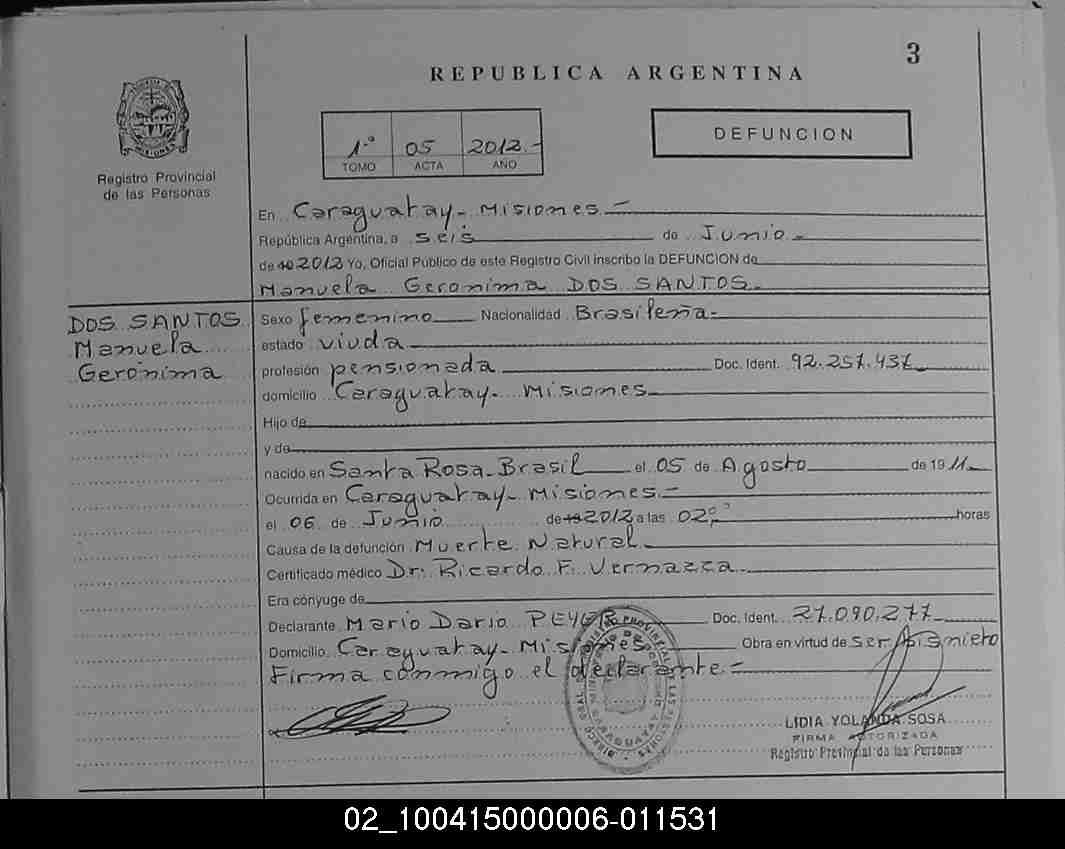 3
REPUBLICA ARGENTINA
Registro Provincial
de las Personas
1.º 05 2012.-
TOMO ACTA AÑO
DEFUNCION
En Caraguatay - Misiones.-
República Argentina, a seis de Junio.-
de 19 2012 Yo, Oficial Público de este Registro Civil inscribo la DEFUNCION de
Manuela Geronima DOS SANTOS.-
DOS SANTOS
Manuela
Gerónima
Sexo femenino Nacionalidad Brasileña.-
estado viuda.-
profesión pensionada Doc. Ident. 92.257.437.-
domicilio Caraguatay - Misiones.-
Hijo de
y de
nacido en Santa Rosa - Brasil el 05 de Agosto de 1911.-
Ocurrida en Caraguatay - Misiones.-
el 06 de Junio de 19 2012 a las 02 horas
Causa de la defunción Muerte Natural.-
Certificado médico Dr. Ricardo F. Vernazza.-
Era cónyuge de
Declarante Mario Dario PEYER Doc. Ident. 27.090.277.-
Domicilio Caraguatay - Misiones Obra en virtud de ser
Firma conmigo el declarante.-
LIDIA YOLANDA SOSA
FIRMA AUTORIZADA
Registro Provincial de las Personas
02_100415000006-011531